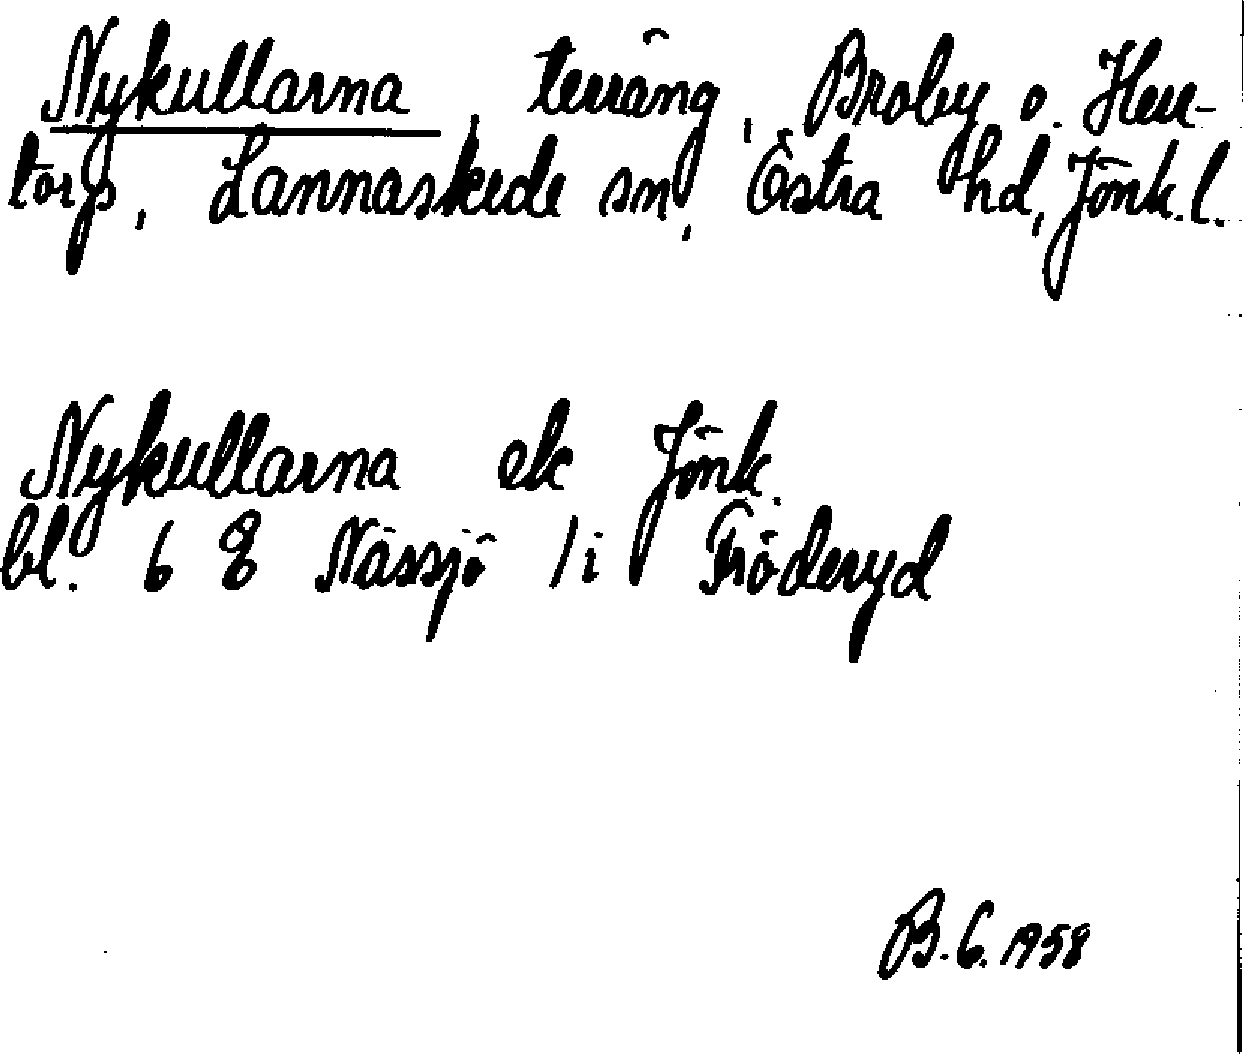 Nykullarna, terräng, Broby o. Herr-
torp, Lannaskede sn, Östra hd, Jönk. l.
Nykullarna ek Jönk.
bl. 6 8 Nässjö / i Fröderyd
B.G. 1958